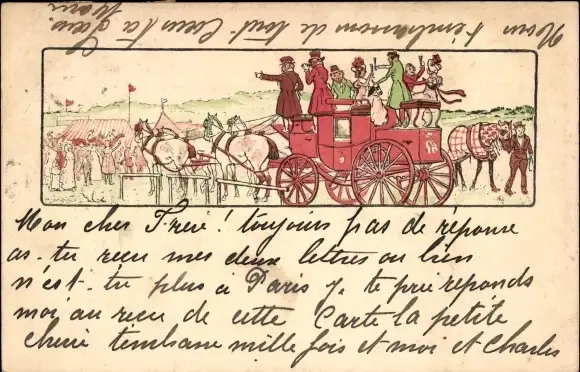 Mon cher Frere! toujours pas de réponse
as-tu reçu mes deux lettres ou bien
n'est-tu plus à Paris je te prie reponds
moi au recu de cette Carte la petite
cherie tembrasse mille fois et moi et Charles
Nous t'embrassons de tout Coeur ta Soeur
Marie